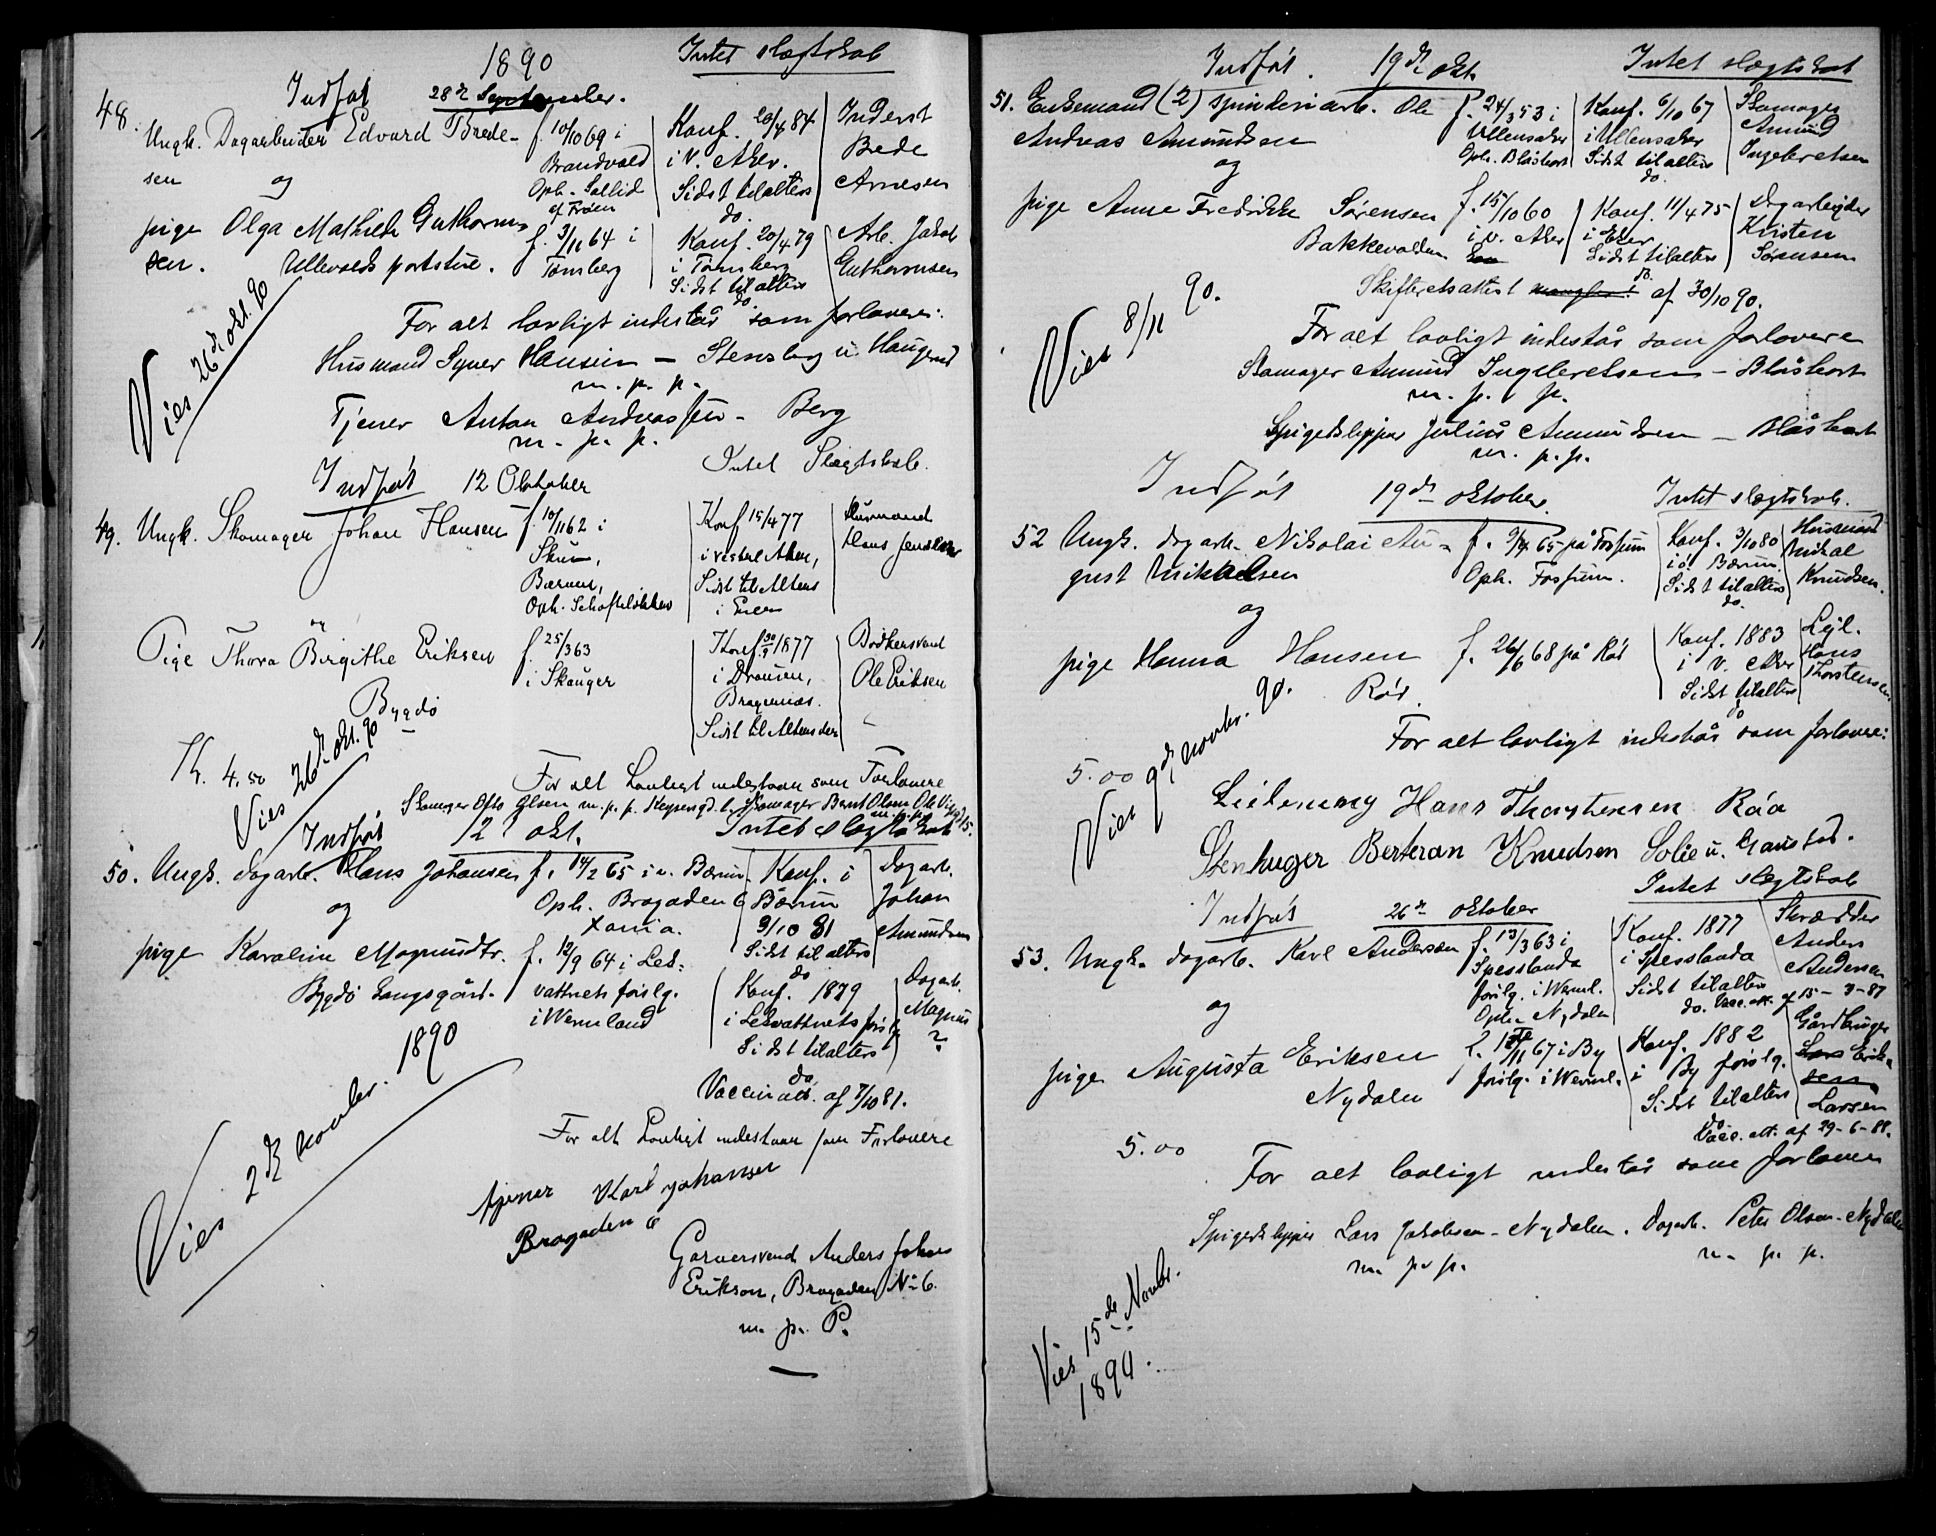 1890
Intet slægtskab
Indført 28de September.
48. Ungk. Dagarbeider Edvard Brede-
sen
og
f. 10/10 69 i
Brandvold
Oph. Sollid
af Frøen
Konf. 20/4 84
i V. Aker.
Sidst til alters
do.
Inderst
Brede
Arnesen
pige Olga Mathilde Guthorm-
sen. Ullevolds portstue.
f. 3/11 64 i
Tønsberg
Konf. 20/4 79
i Tønsberg
Sidst til alters
do.
Arb. Jakob
Guthormsen
Vies 26de okt. 90
For alt lovligt indestår som forlovere:
Husmand Syver Hansen – Stensby u. Haugerud
m. p. p.
Tjener Anton Andreassen – Berg
m. p. p.
Indført 12 Oktober
Intet Slægtskab.
49. Ungk. Skomager Johan Hansen
f. 10/11 62 i
Skui,
Bærum,
Oph. Schafteløkken
Konf 15/4 77
i vestre Aker,
Sidst til Altens
i Eier
Husmand
Hans Jensen
og
Pige Thora Birgithe Eriksen
Bygdø
f 25/3 63
i Skauger
Konf 30/9 1877
i Dramen,
Bragernæs.
Sidst til Altens der
Bødkersvend
Ole Eriksen
Th. 4.50
Vies 26de okt. 90
For alt Lovligt indestaar som Forlovere
Skomager Otto Olsen m. p. p. Skomager Bernt Olsen Ole Vigsgd 15.
m. p. p.
Indført 12 okt.
Intet slægtskab
50. Ungk. dagarb. Hans Johansen
og
f. 14/2 65 i v. Bærum.
Oph. Brogaden 6
Xania.
Konf. i
Bærum
9/10 81
Sidst til alters
do
Dagarb.
Johan
Amundsen
pige Karoline Magnusdtr.
Bygdø Kongsgård.
f. 12/9 64 i Lek-
vattnets førslg.
i Wermland
Konf. 1879
i Lekvattnets førslg
Sidst til alters
do
Dagarb.
Magnus
?
Vaccinatt. af 7/10 81.
Vies 2de novbr. 1890
For alt Lovligt indestaar som Forlovere
tjener Karl Johansen
Brogaden 6
Garversvend Anders Johan
Erikson, Brogaden No 6.
m. p. P.
Indført. 19de okt.
Intet slægtskab
51. Enkemand (2) spinderiarb. Ole
Andreas Amundsen
og
f. 24/3 53 i
Ullensaker
Oph. Blåskort
Konf. 6/10 67
i Ullensaker
Sidst til alters
do.
Skomager
Amund
Ingebretsen
pige Anne Fredrikke Sørensen
Bakkevolden
f. 15/10 60
i v. Aker
Konf. 11/4 75
i Eker
Sidst til alters
do.
Dagarbeider
Kristen
Sørensen
Skifteretsattest mangler! af 30/10 90.
Vies 8/11 90.
For alt lovligt indestår som forlovere
Skomager Amund Ingebretsen – Blåskort
m. p. p.
Spigerklipper Julius Amundsen – Blåskort
m. p. p.
Indført 19de oktober.
Intet slægtskab.
52 Ungk. dagarb. Nikolai Au-
gust Mikkelsen
og
f. 9/4 65 på Fossum
Oph. Fossum.
Konf. 3/10 80
i ø. Bærum.
Sidst til alters
do.
Husmand
Mikal
Knudsen.
pige Hanna Hansen
Röd.
f. 26/6 68 på Röd
Konf. 1883
i V. Aker
Sidst til alters
do
Lejl.
Hans
Thorstensen
5.00
Vies 9de novbr. 90.
For alt lovligt indestår som forlovere:
Leilending Hans Thorstensen Röa
Stenhuger Berteran Knudsen Solie u. Gaustad.
Indført 26de oktober
Intet slægtskab
53. Ungk. dagarb. Karl Andersen
og
f. 13/3 63 i
Spesslanda
førslg. i Werml.
Oph. Nydalen
Konf. 1877
i Spesslanda
Sidst til alters
do. Vacc. att. af 15-3-87
Skrædder
Anders
Andersen
pige Augusta Eriksen
Nydalen
f. /11 67 i By
førslg. i Werml.
Konf. 1882
i By førslg.
Sidst til alters
do
Gårdbruger
Lars Erik-
sen
Larsen
Vacc. att. af 29-6-88.
5.00
For alt lovligt indestår som forlovere
Spigerklipper Lars Jakobsen – Nydalen. Dagarb. Peter Olsen – Nydalen
m. p. p.
m. p. p.
Vies 15de Novbr.
1890.